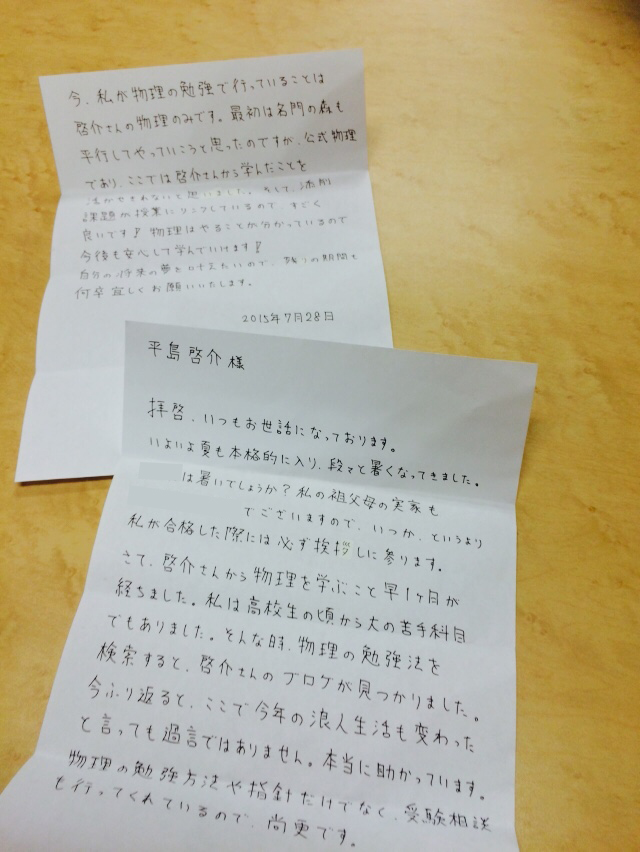 今、私が物理の勉強で行っていることは
啓介さんの物理のみです。最初は名門の森も
平行してやっていこうと思ったのですが、公式物理
であり、ここでは啓介さんから学んだことを
活かせきれないと思いました。そして、添削
課題が授業にリンクしているので、すごく
良いです！物理はやることが分かっているので
今後も安心して学んでいけます！
自分の将来の夢を叶えたいので、残りの期間も
何卒宜しくお願いいたします。
2015年7月28日
平島啓介様
拝啓、いつもお世話になっております。
いよいよ夏も本格的に入り、段々と暑くなってきました。
は暑いでしょうか？私の祖父母の実家も
でございますので、いつか、というより
私が合格した際には必ず挨拶しに参ります。
さて、啓介さんから物理を学ぶこと早1ヶ月が
経ちました。私は高校生の頃から大の苦手科目
でもありました。そんな時、物理の勉強法を
検索すると、啓介さんのブログが見つかりました。
今ふり返ると、ここで今年の浪人生活も変わった
と言っても過言ではありません。本当に助かっています。
物理の勉強方法や指針だけでなく、受験相談
も行ってくれているので、尚更です。